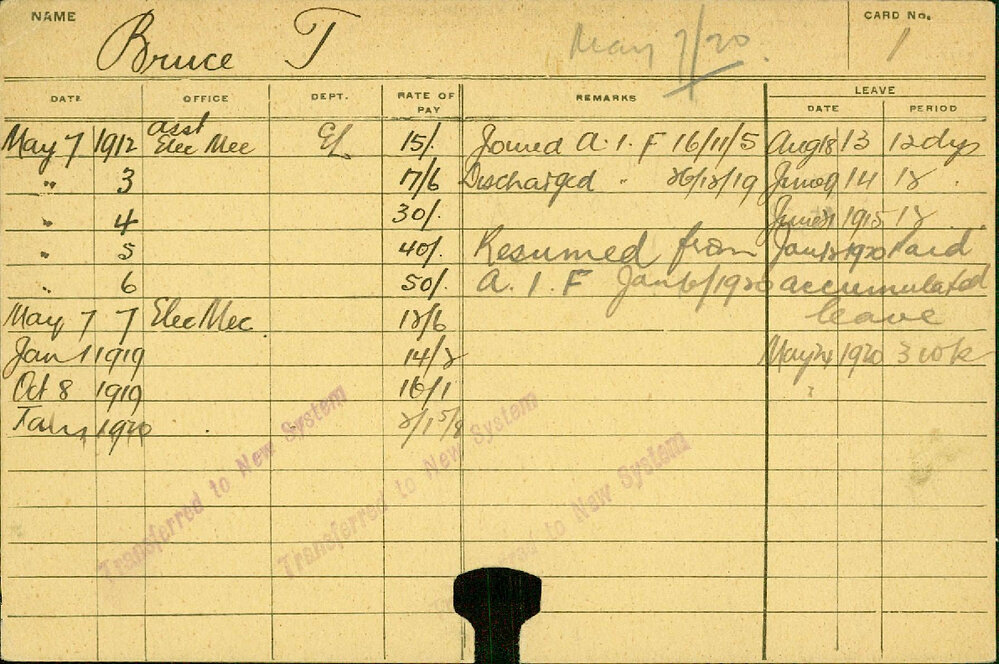 NAME Bruce T May 7/20 CARD No. 1
DATE OFFICE DEPT. RATE OF PAY REMARKS LEAVE
DATE PERIOD
May 7 1912 asst Elec Mec EL 15/. Joined A.I.F 16/11/5 Aug 13 12 dys
" 3 17/6 Discharged " /19 June 14 12 .
" 4 30/. June 1915 12
" 5 40/. Resumed from Jan 1920 Paid
" 6 50/. A.I.F Jan /1920 accumulated
May 7 7 Elec Mec. 12/6 leave
Jan 1 1919 14/2 May 24 1920 3 wok
Oct 8 1919 16/1
1920
Transferred to New System
Transferred to New System
to New System